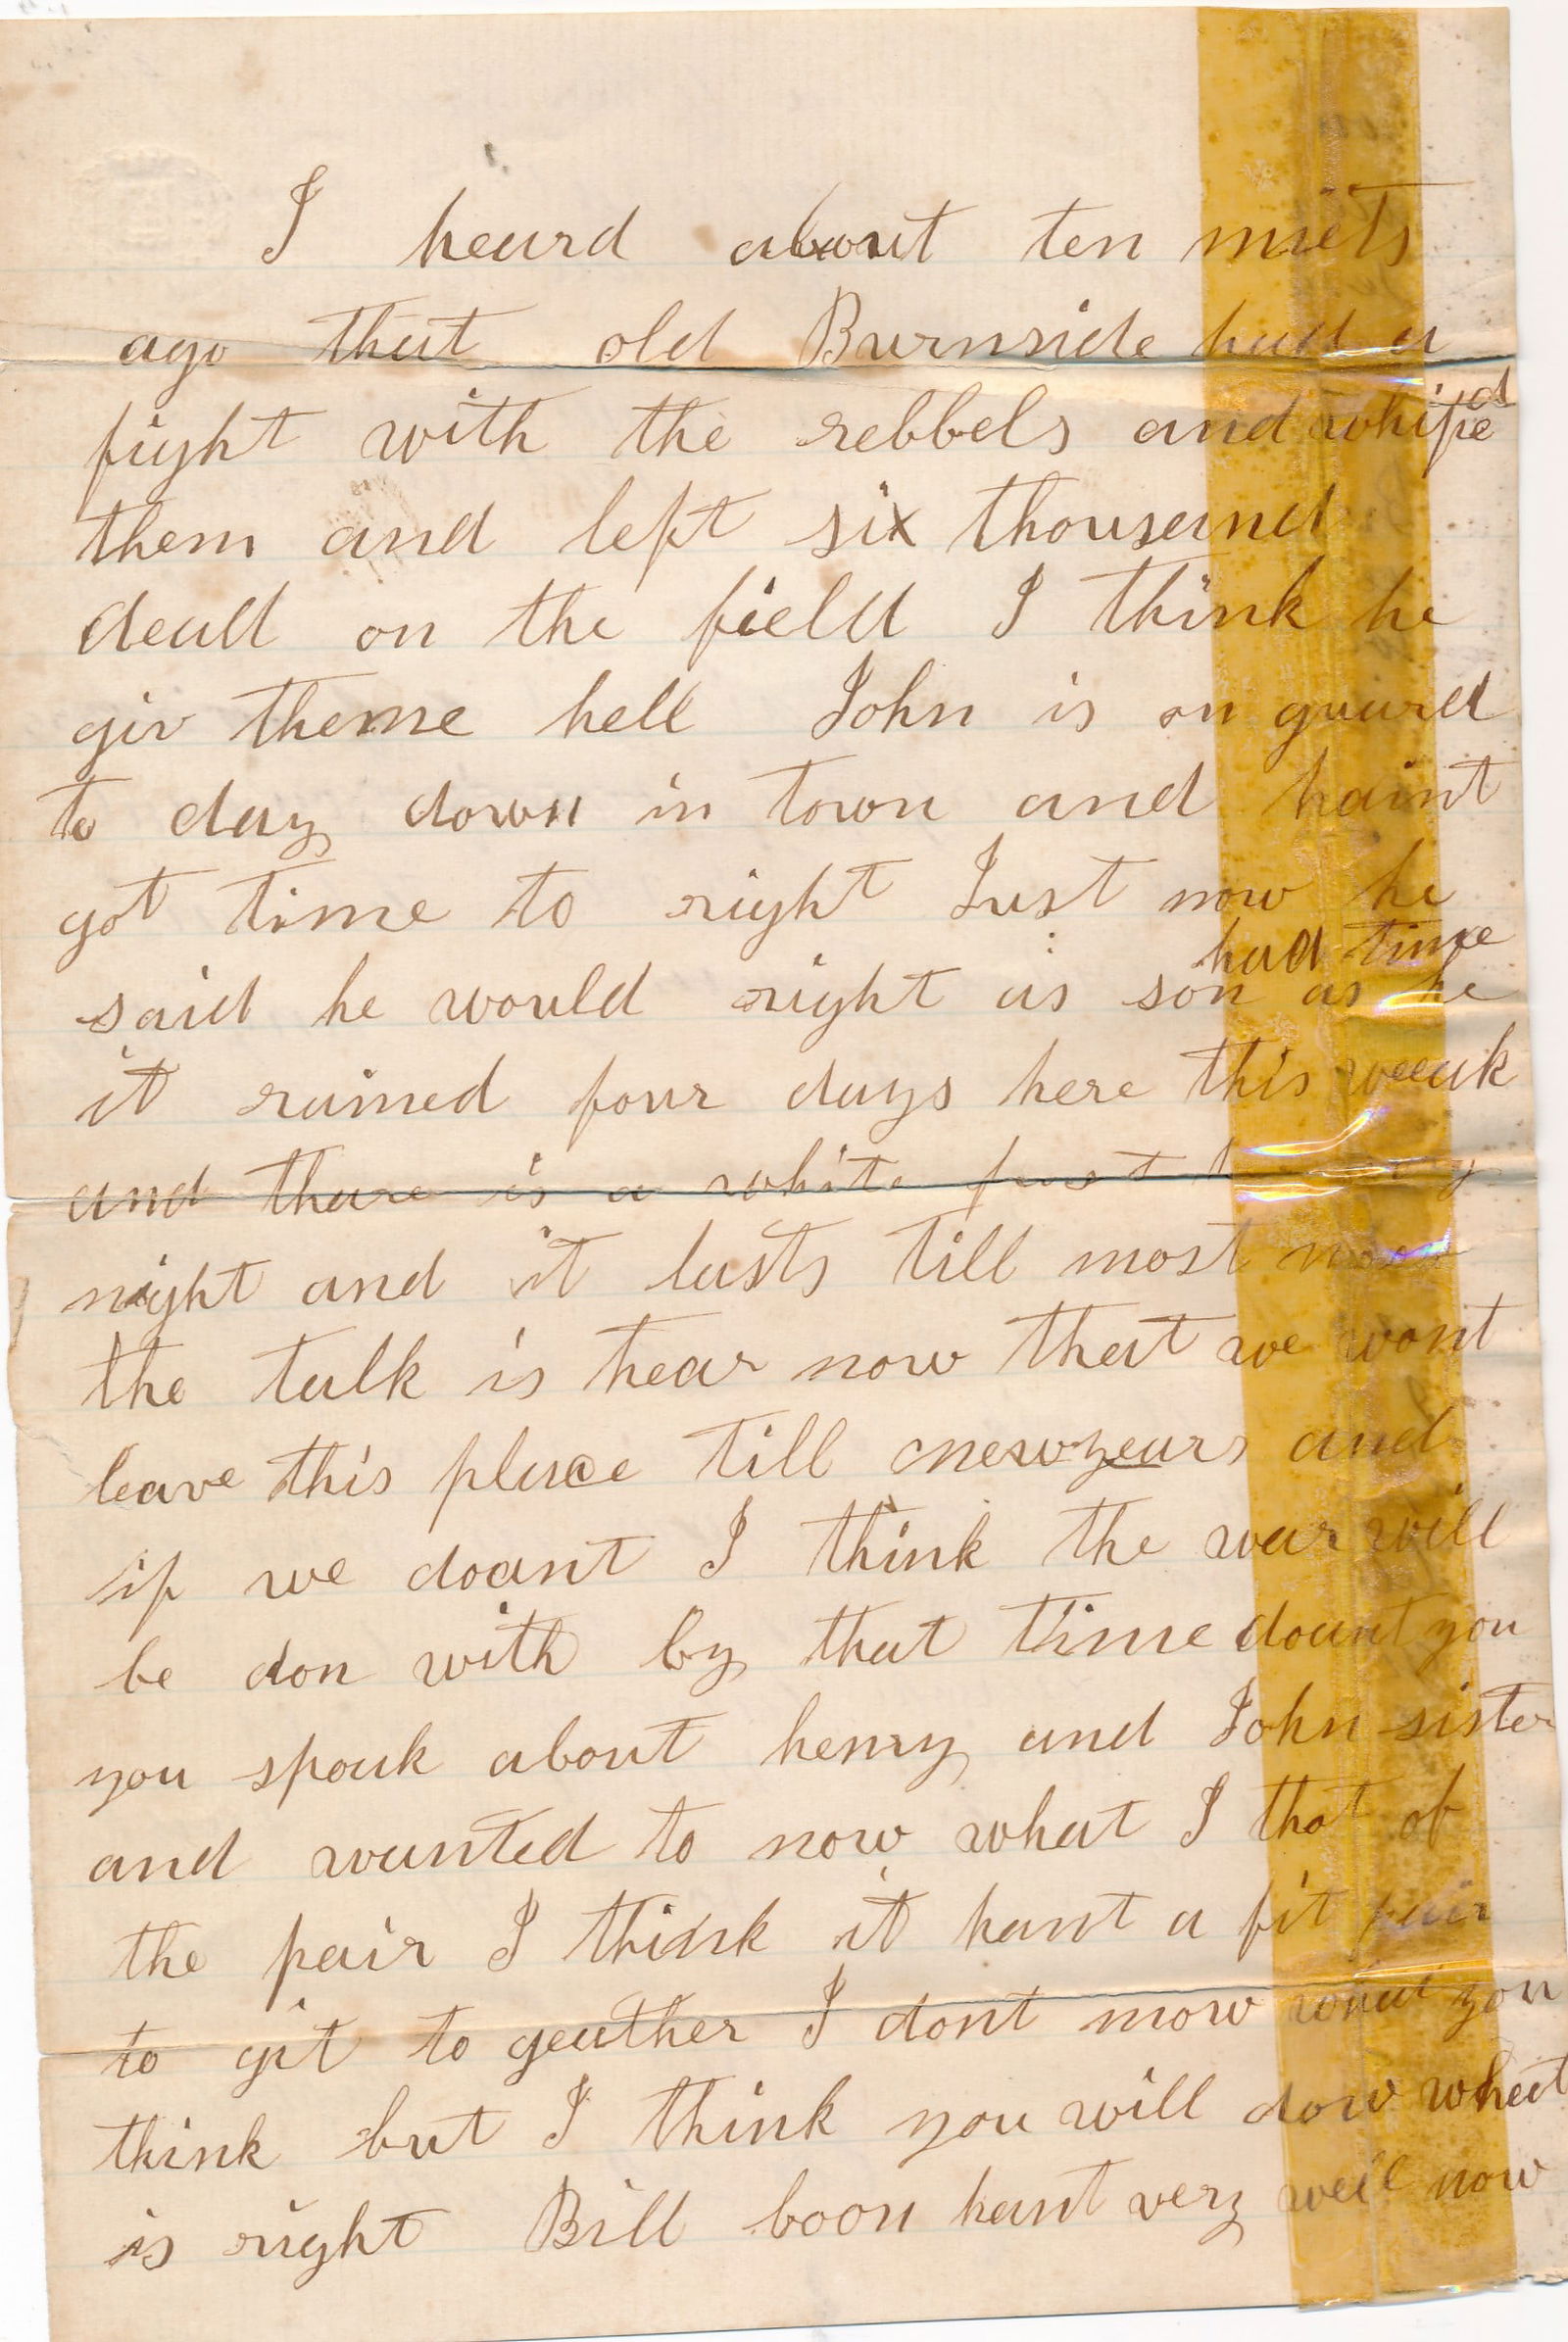 I heard about ten miets
ago that old Burnside had a
fight with the rebbels and whiped
them and left six thousand
dead on the field I think he
giv theme hell John is on guard
to day down in town and haint
got time to right Just now he
said he would right as son as he
had time
it rained four days here this weeak
and thare is a white frost
night and it lasts till most noon
the talk is hear now that we wont
leave this place till newyears and
if we doant I think the war will
be don with by that time doant you
you spoak about henry and John sister
and wanted to now what I that of
the pair I think it hant a fit pair
to git to geather I dont now what you
think but I think you will dow wheat
is right Bill boon hant very well now